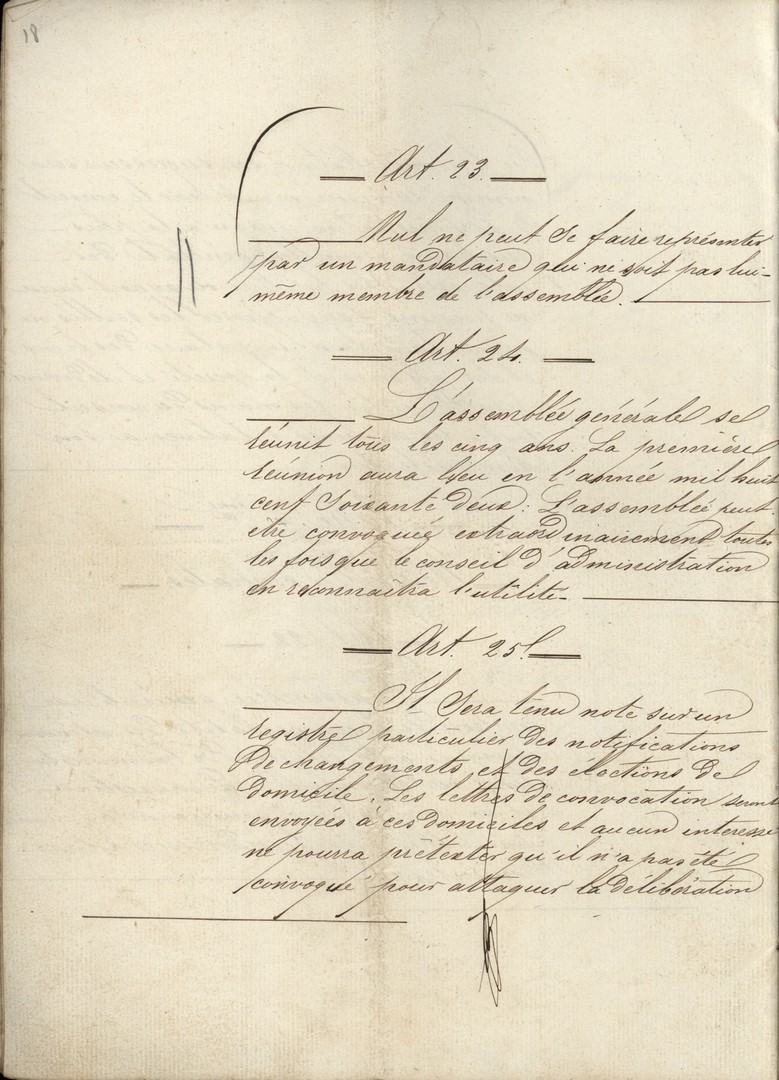 18
Art. 23.
Nul ne peut se faire représenter
par un mandataire qui ne soit pas lui-
même membre de l'assemblée.
Art. 24.
L'assemblée générale se
réunit tous les cinq ans. La première
reunion aura lieu en l'année mil huit
cent soixante deux: L'assemblée peut
etre convoquée extraordinairement toutes
les fois que le conseil d'administration
en reconnaitra l'utilité.
Art. 25.
Il sera tenu note sur un
registre particulier des notifications
de changements et des élections de
domicile. Les lettres de convocation seront
envoyées à ces domiciles et aucun intéressé
ne pourra prétexter qu'il n'a pas été
convoqué pour attaquer la délibération